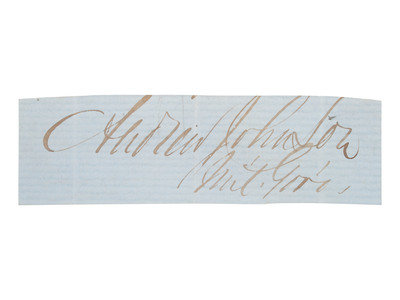 Andrew Johnson
Mil. Gov.